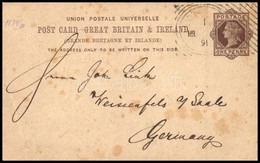 UNION POSTALE UNIVERSELLE
POST CARD - GREAT BRITAIN & IRELAND
(GRANDE BRETAGNE ET IRLANDE)
THE ADDRESS ONLY TO BE WRITTEN ON THIS SIDE.
POSTAGE
ONE PENNY
91
Herrn John Link
Weissenfels a/ Saale
Germany